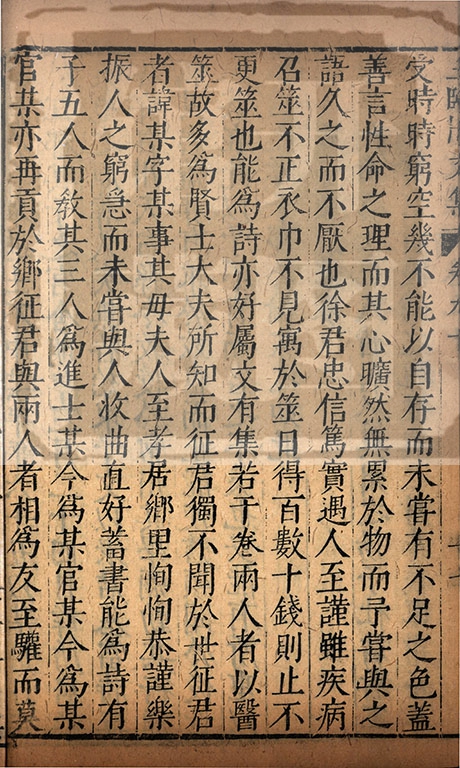 王臨川文集 卷九十
受時時窮空幾不能以自存而未甞有不足之色蓋
善言性命之理而其心曠然無累於物而予甞與之
語久之而不厭也徐君忠信篤實遇人至謹雖疾病
召筮不正衣巾不見寓於筮日得百數十錢則止不
更筮也能為詩亦好屬文有集若干卷兩人者以醫
筮故多為賢士大夫所知而征君獨不聞於世征君
者諱某字某事其母夫人至孝居鄉里恂恂恭謹樂
振人之窮急而未甞與人收曲直好蓄書能為詩有
子五人而教其三人為進士某今為某官某今為某
官某亦再貢於鄉征君與兩人者相為友至驩而莫